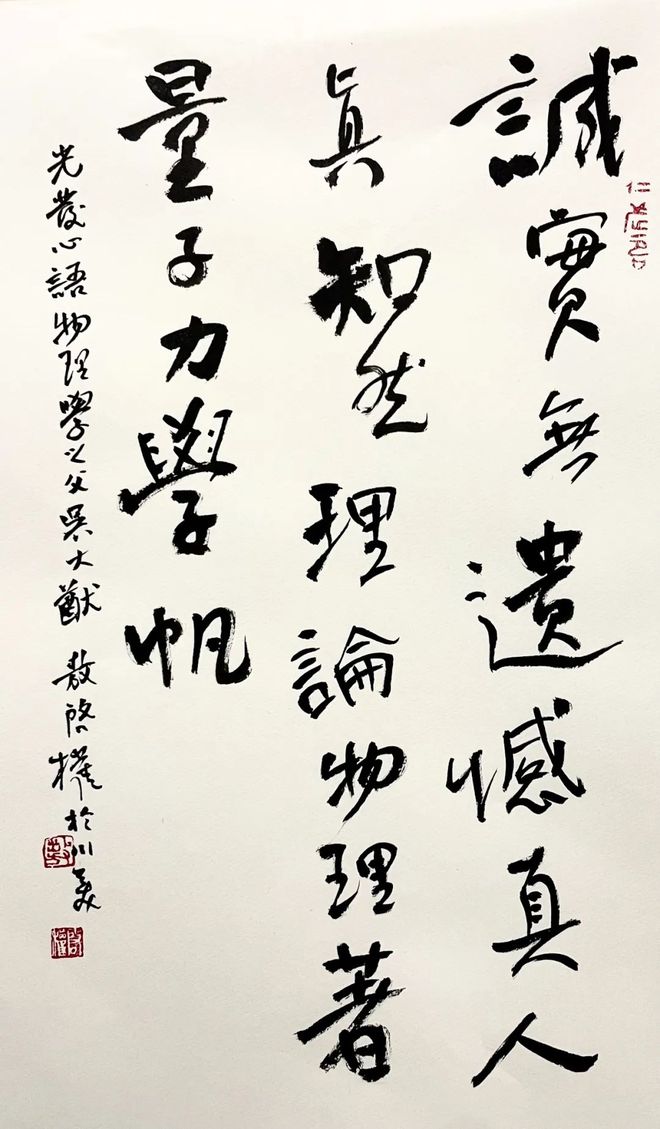 誠實無遺憾真人
真知然理論物理著
量子力學帆
光發心語物理學之父吳大猷 敖啓權於川美